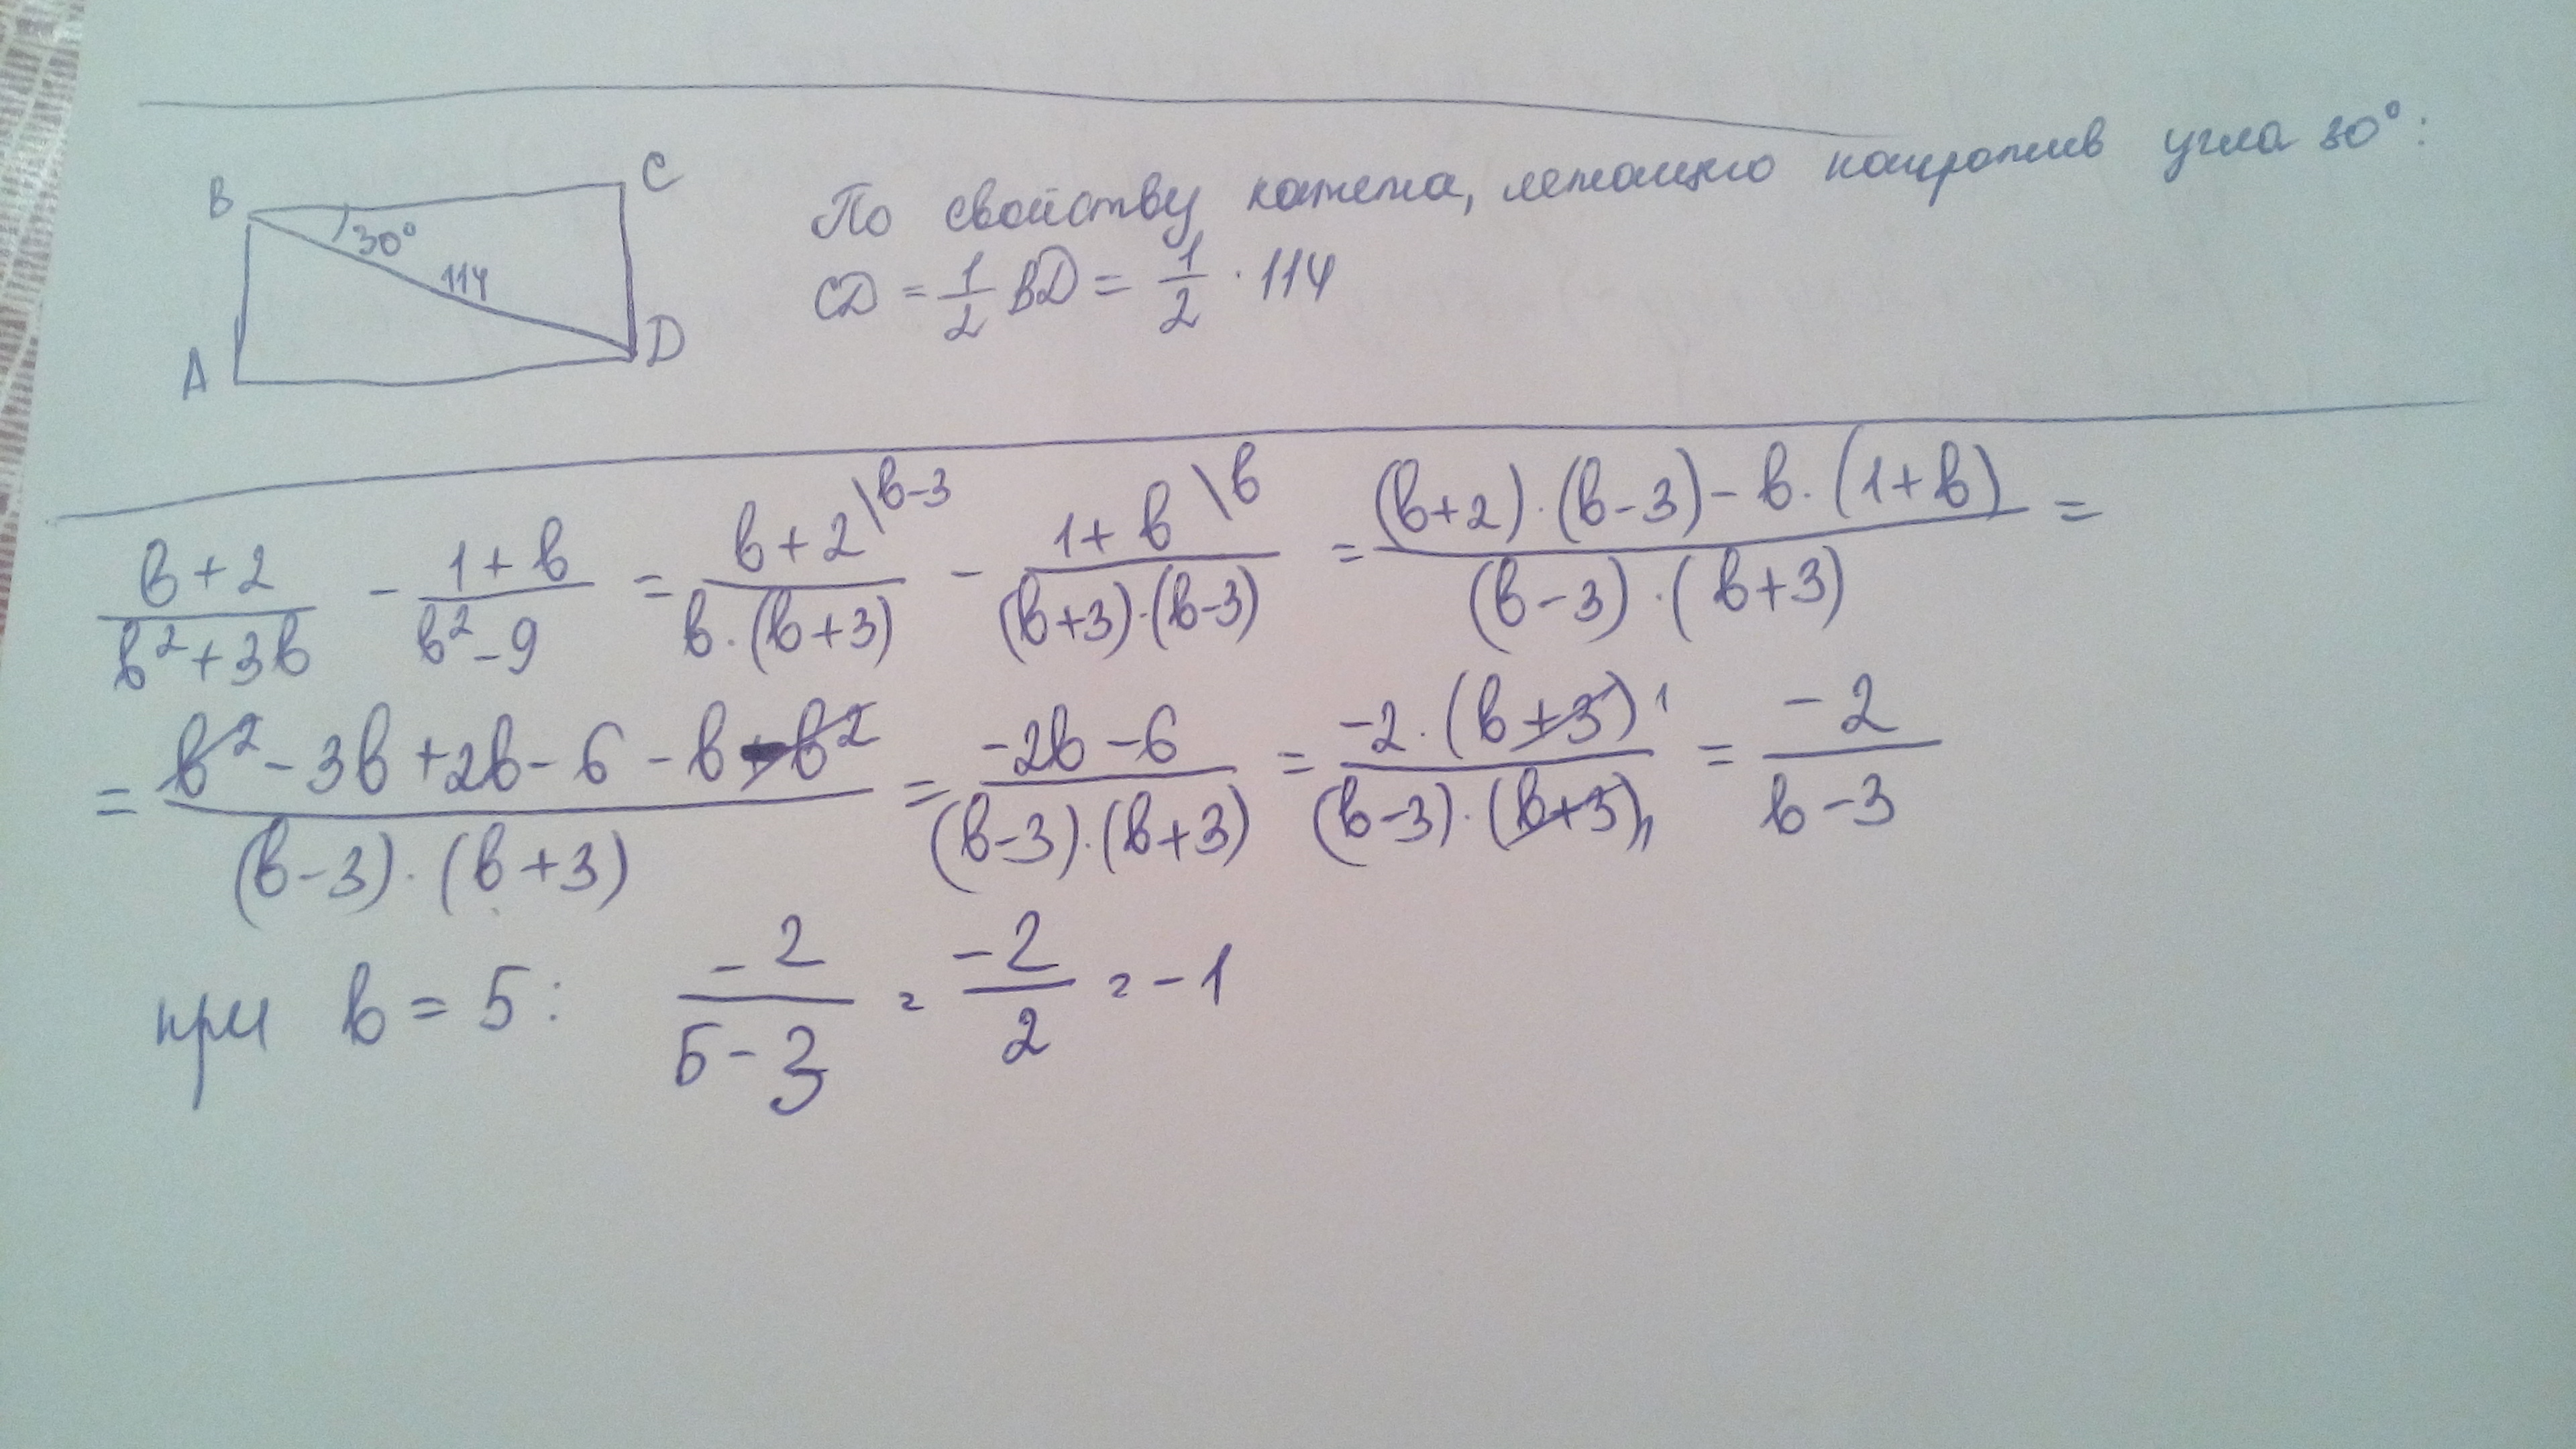 B C
30°
114
A D
По свойству катета, лежащего напротив угла 30°:
CD = 1/2 BD = 1/2 · 114
(b+2)/(b²+3b) - (1+b)/(b²-9) = (b+2)\b-3/(b·(b+3)) - (1+b)\b/((b+3)·(b-3)) = ((b+2)·(b-3)-b·(1+b))/((b-3)·(b+3)) =
= (b²-3b+2b-6-b-b²)/((b-3)·(b+3)) = (-2b-6)/((b-3)·(b+3)) = (-2·(b+3)¹)/((b-3)·(b+3)₁) = -2/(b-3)
при b = 5: -2/(5-3) = -2/2 = -1